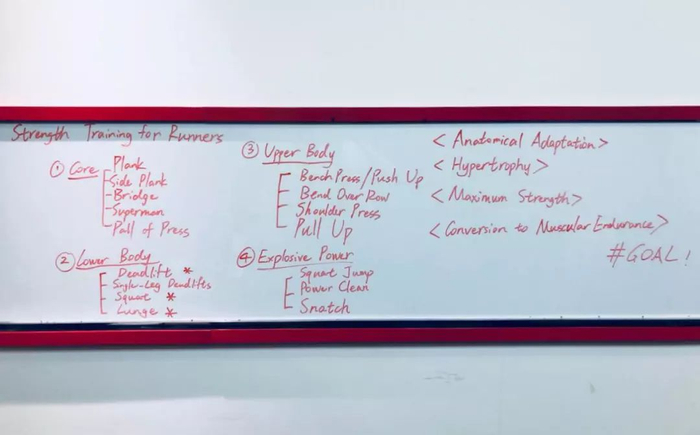 Strength Training for Runners
① Core
Plank
Side Plank
Bridge
Superman
Pall of Press
② Lower Body
Deadlift *
Single-Leg Deadlifts
Squart *
Lunge *
③ Upper Body
Bench Press / Push Up
Bend Over Row
Shoulder Press
Pull Up
④ Explosive Power
Squart Jump
Power Clean
Snatch
< Anatomical Adaptation >
< Hypertrophy >
< Maximum Strength >
< Conversion to Muscular Endurance >
#GOAL!